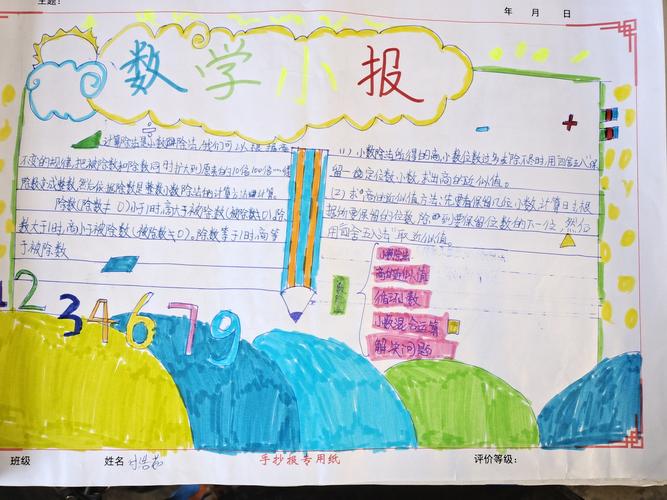 主题:
年 月 日
数学小报
计算除法是小数的除法,我们可以根据商
不变的规律,把被除数和除数同时扩大到原来的10倍100倍……使
除数变成整数,然后依据除数是整数小数除法的计算方法计算。
除数(除数≠0)小于1时,商大于被除数(被除数≠0),除
数大于1时,商小于被除数(被除数≠0)。除数等于1时,商等
于被除数
(1)小数除法所得的商小数位数过多或除不尽时,用"四舍五入"保
留一确定位数小数,求出商的近似值。
(2)求商的近似值方法:先要看保留几位小数,计算时根
据所要保留的位数,除到要保留位数的下一位,然后
用"四舍五入法"取近似值。
小数除法
商的近似值
循环小数
小数混合运算
解决问题
1 2 3 4 6 7 9
班级
姓名
手抄报专用纸
评价等级: